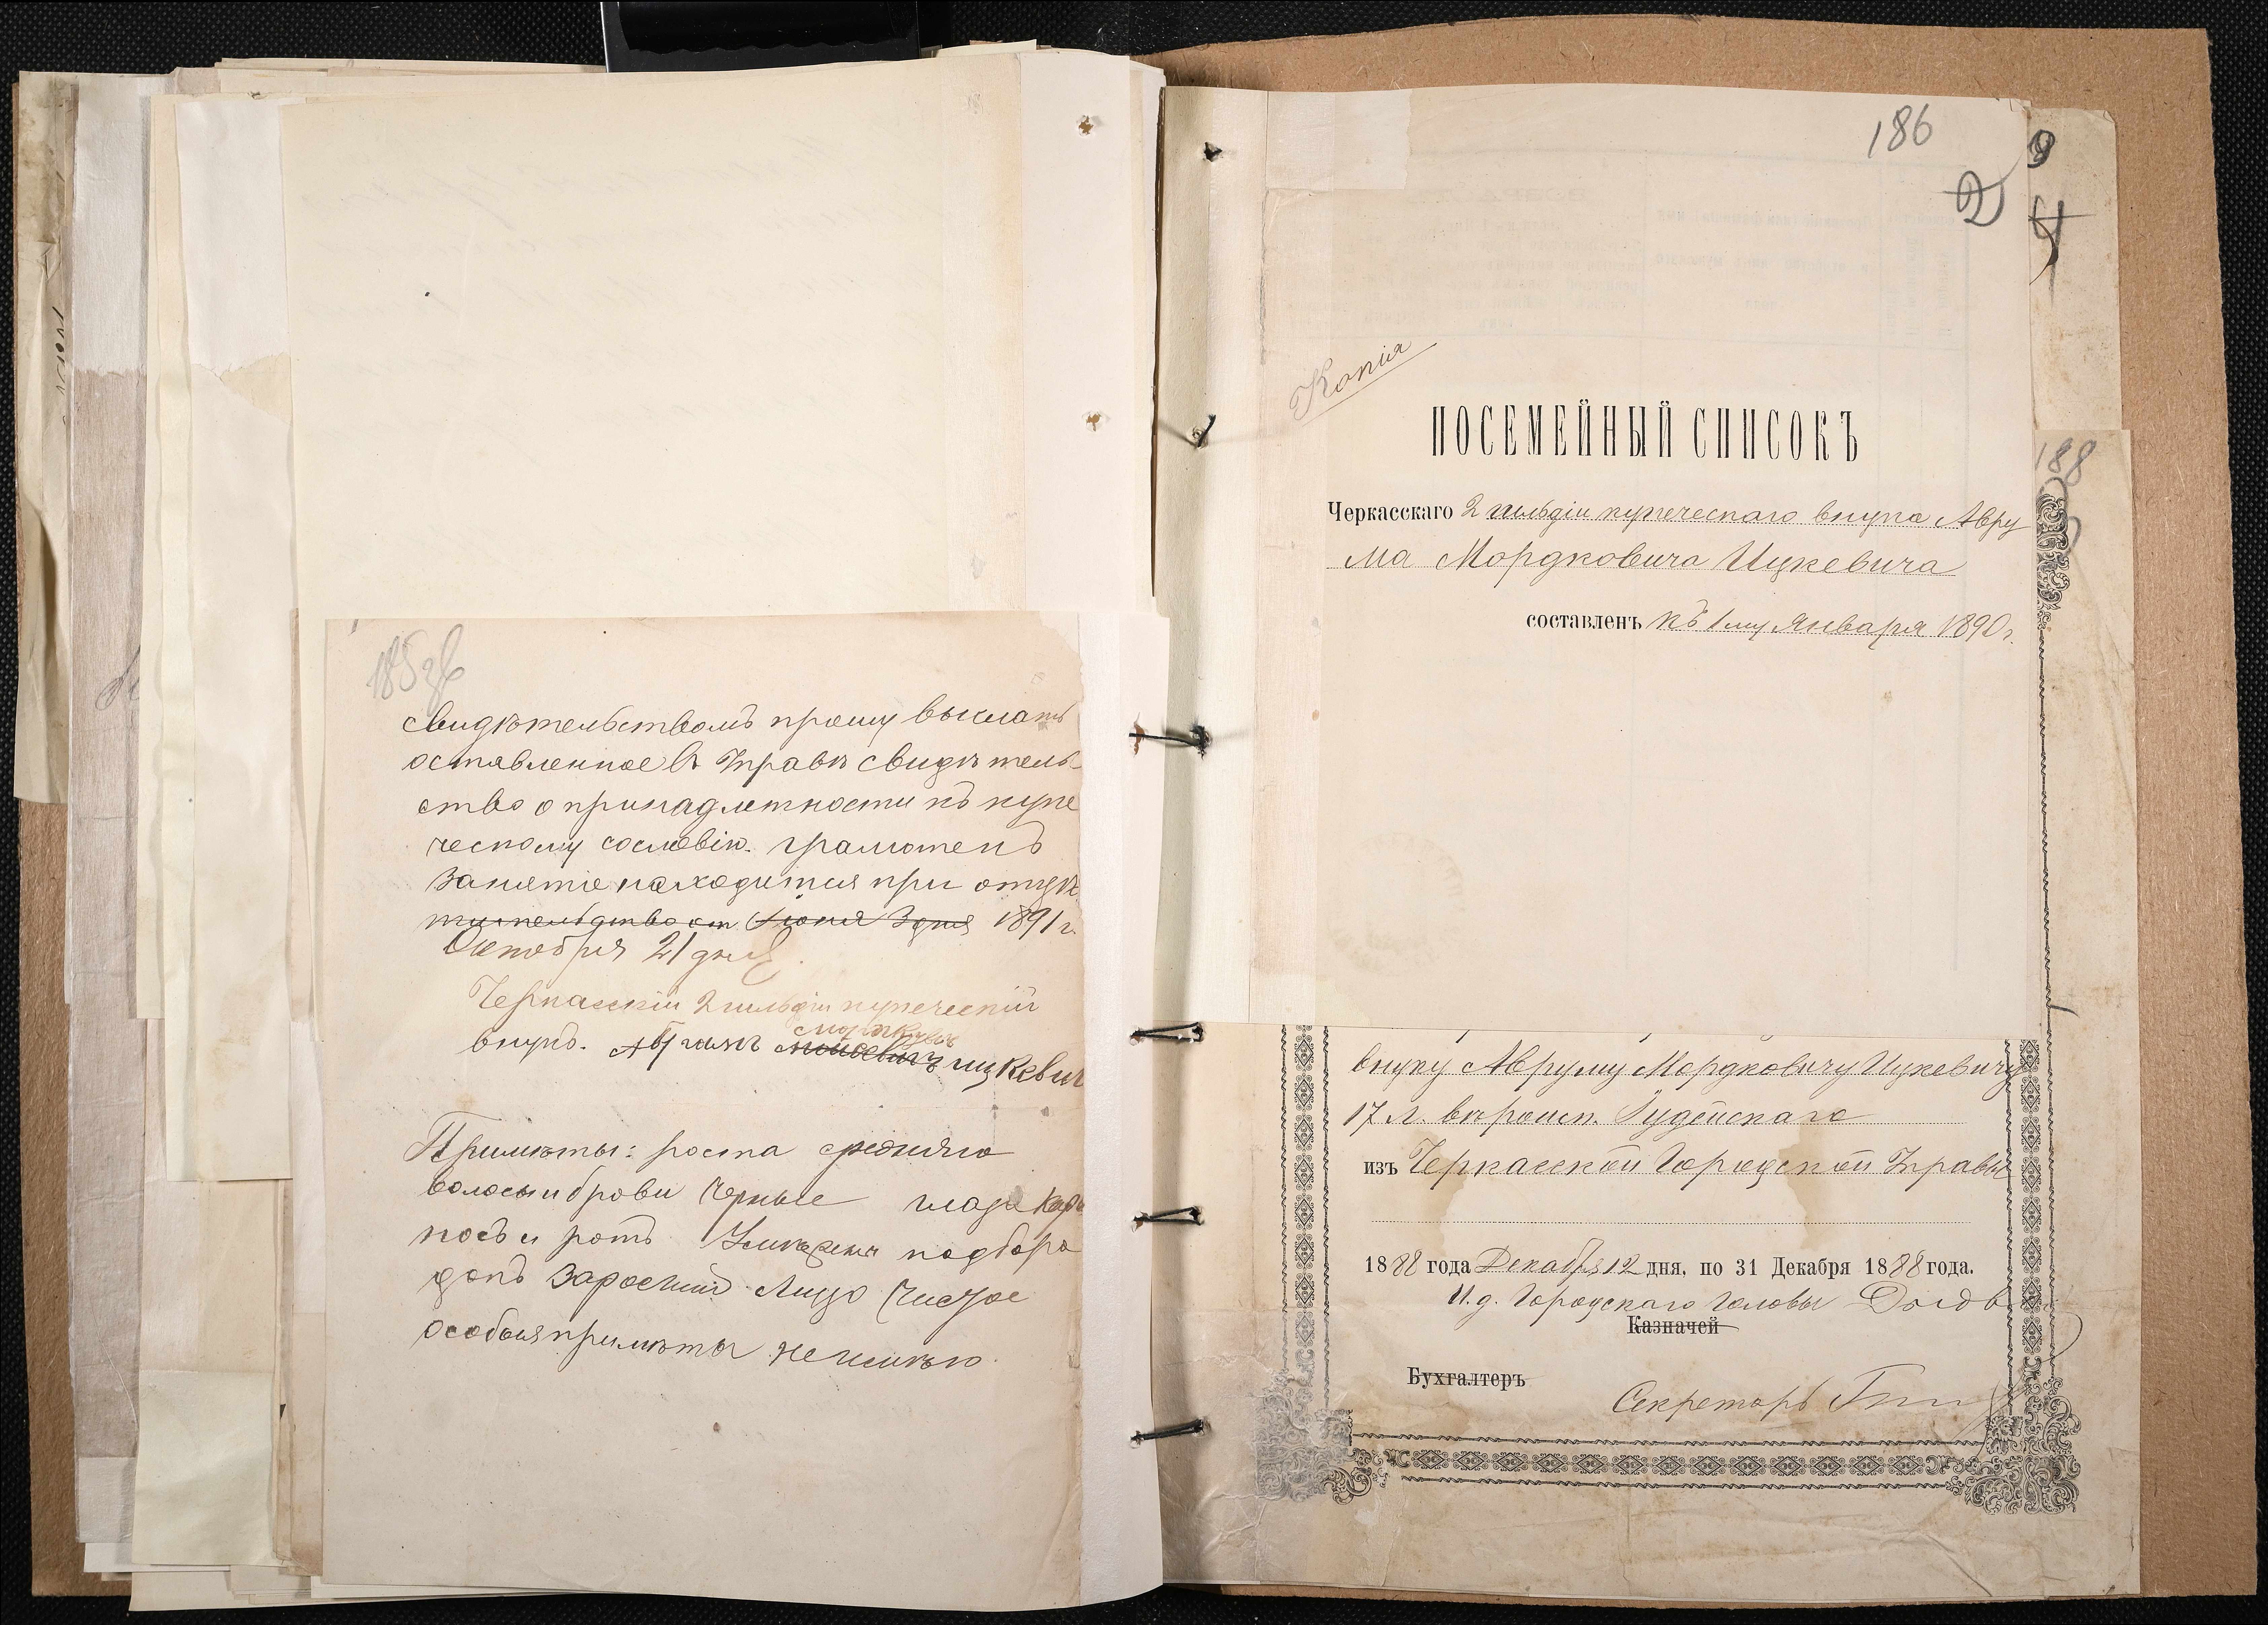 185 зв
свидѣтельствомъ прошу выслать
оставленное въ Управѣ свидѣтель-
ство о принадлежности къ купе
ческому сословію. грамотенъ
занятіе находится при отцѣ.
Іюня 3 дня 1891 г.
Октября 21 дня
Черкасскій 2 гильдіи купеческій
внукъ. Абрамъ Моисеевичъ Ицкевич
Примѣты: роста средняго
волосы и брови черные глаза каріе
носъ и ротъ умѣрены подборо
докъ заросший Лицо чистое
особыя примѣты не имѣю.
186
2
Копія
ПОСЕМЕЙНЫЙ СПИСОКЪ
Черкасскаго 2 гильдіи купеческаго внука Авру
ма Мордковича Ицкевича
составленъ къ 1му Января 1890 г.
188
внуку Авруму Мордковичу Ицкевичу
17 л. вѣроисп. Іудейскаго
изъ Черкасской Городской Управы
1888 года Декабря 12 дня, по 31 Декабря 1888 года.
И. д. Городскаго Головы
Казначей
Бухгалтеръ
Секретарь